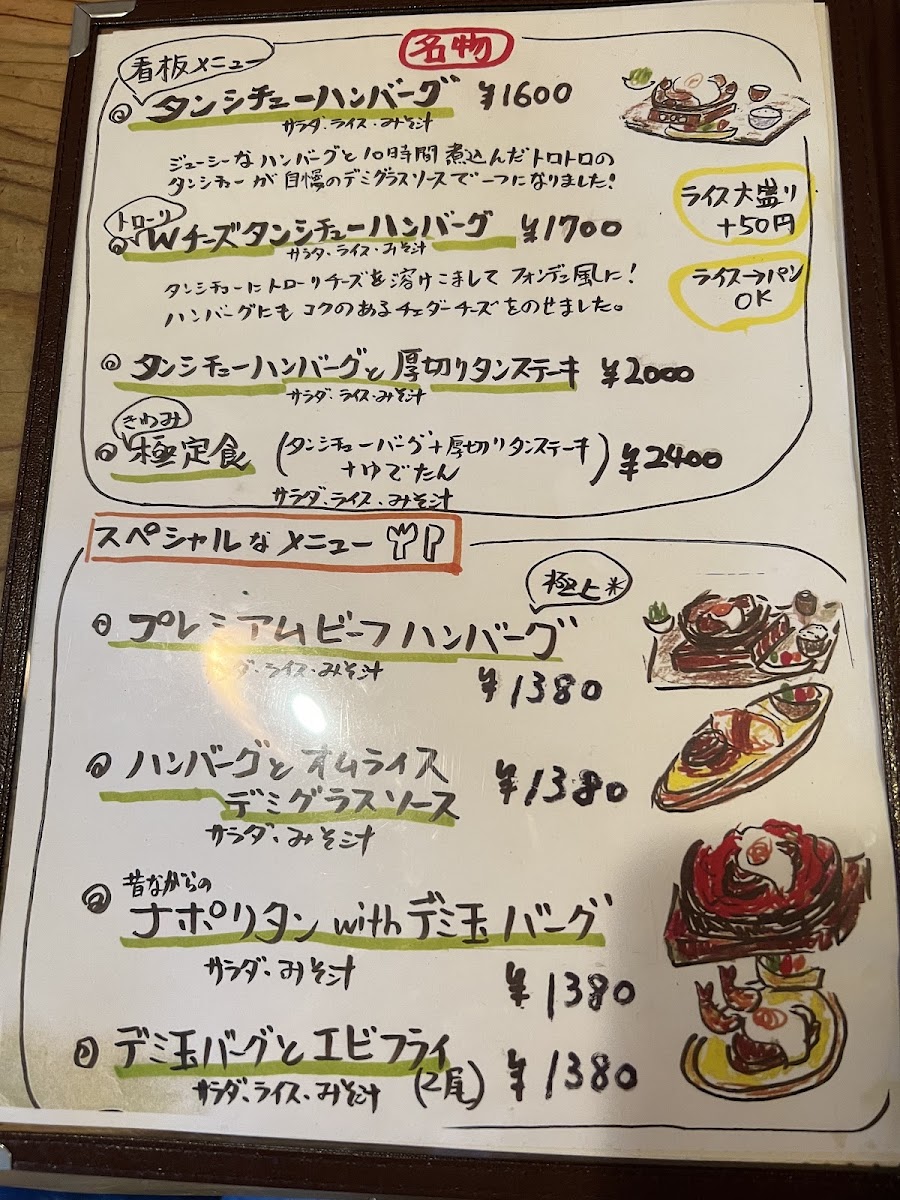 名物
看板メニュー
タンシチューハンバーグ ¥1600
サラダ、ライス・みそ汁
ジューシーなハンバーグと10時間煮込んだトロトロの
タンシチューが自慢のデミグラスソースで一つになりました!
ライス大盛り
+50円
トローリ
Wチーズタンシチューハンバーグ ¥1700
サラダ、ライス・みそ汁
タンシチューにトローリチーズを溶けこまして フォンデュ風に!
ハンバーグにもコクのあるチェダーチーズをのせました。
ライス→パン
OK
タンシチューハンバーグと厚切りタンステーキ ¥2000
サラダ、ライス・みそ汁
きわみ
極定食 (タンシチューバーグ+厚切りタンステーキ
+ゆでたん) ¥2400
サラダ、ライス・みそ汁
スペシャルなメニュー
極上*
プレミアムビーフハンバーグ
ダ・ライス・みそ汁
¥1380
ハンバーグとオムライス
デミグラスソース ¥1380
サラダ、みそ汁
昔ながらの
ナポリタン with デミ玉バーグ
サラダ、みそ汁
¥1380
デミ玉バーグとエビフライ
(2尾) ¥1380
サラダ、ライス・みそ汁